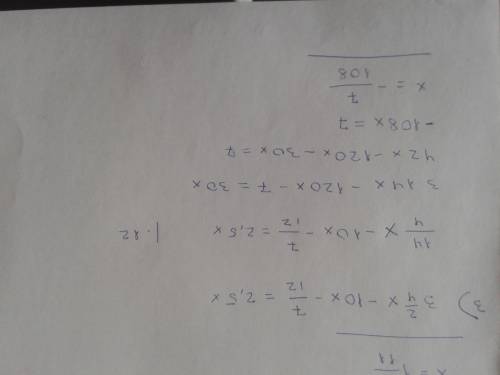 x = 1 /11
3) 3 2/4 x - 10x - 7/12 = 2,5x
14/4 x - 10x - 7/12 = 2,5x |·12
3·14x - 120x - 7 = 30x
42x - 120x - 30x = 7
-108x = 7
x = - 7/108